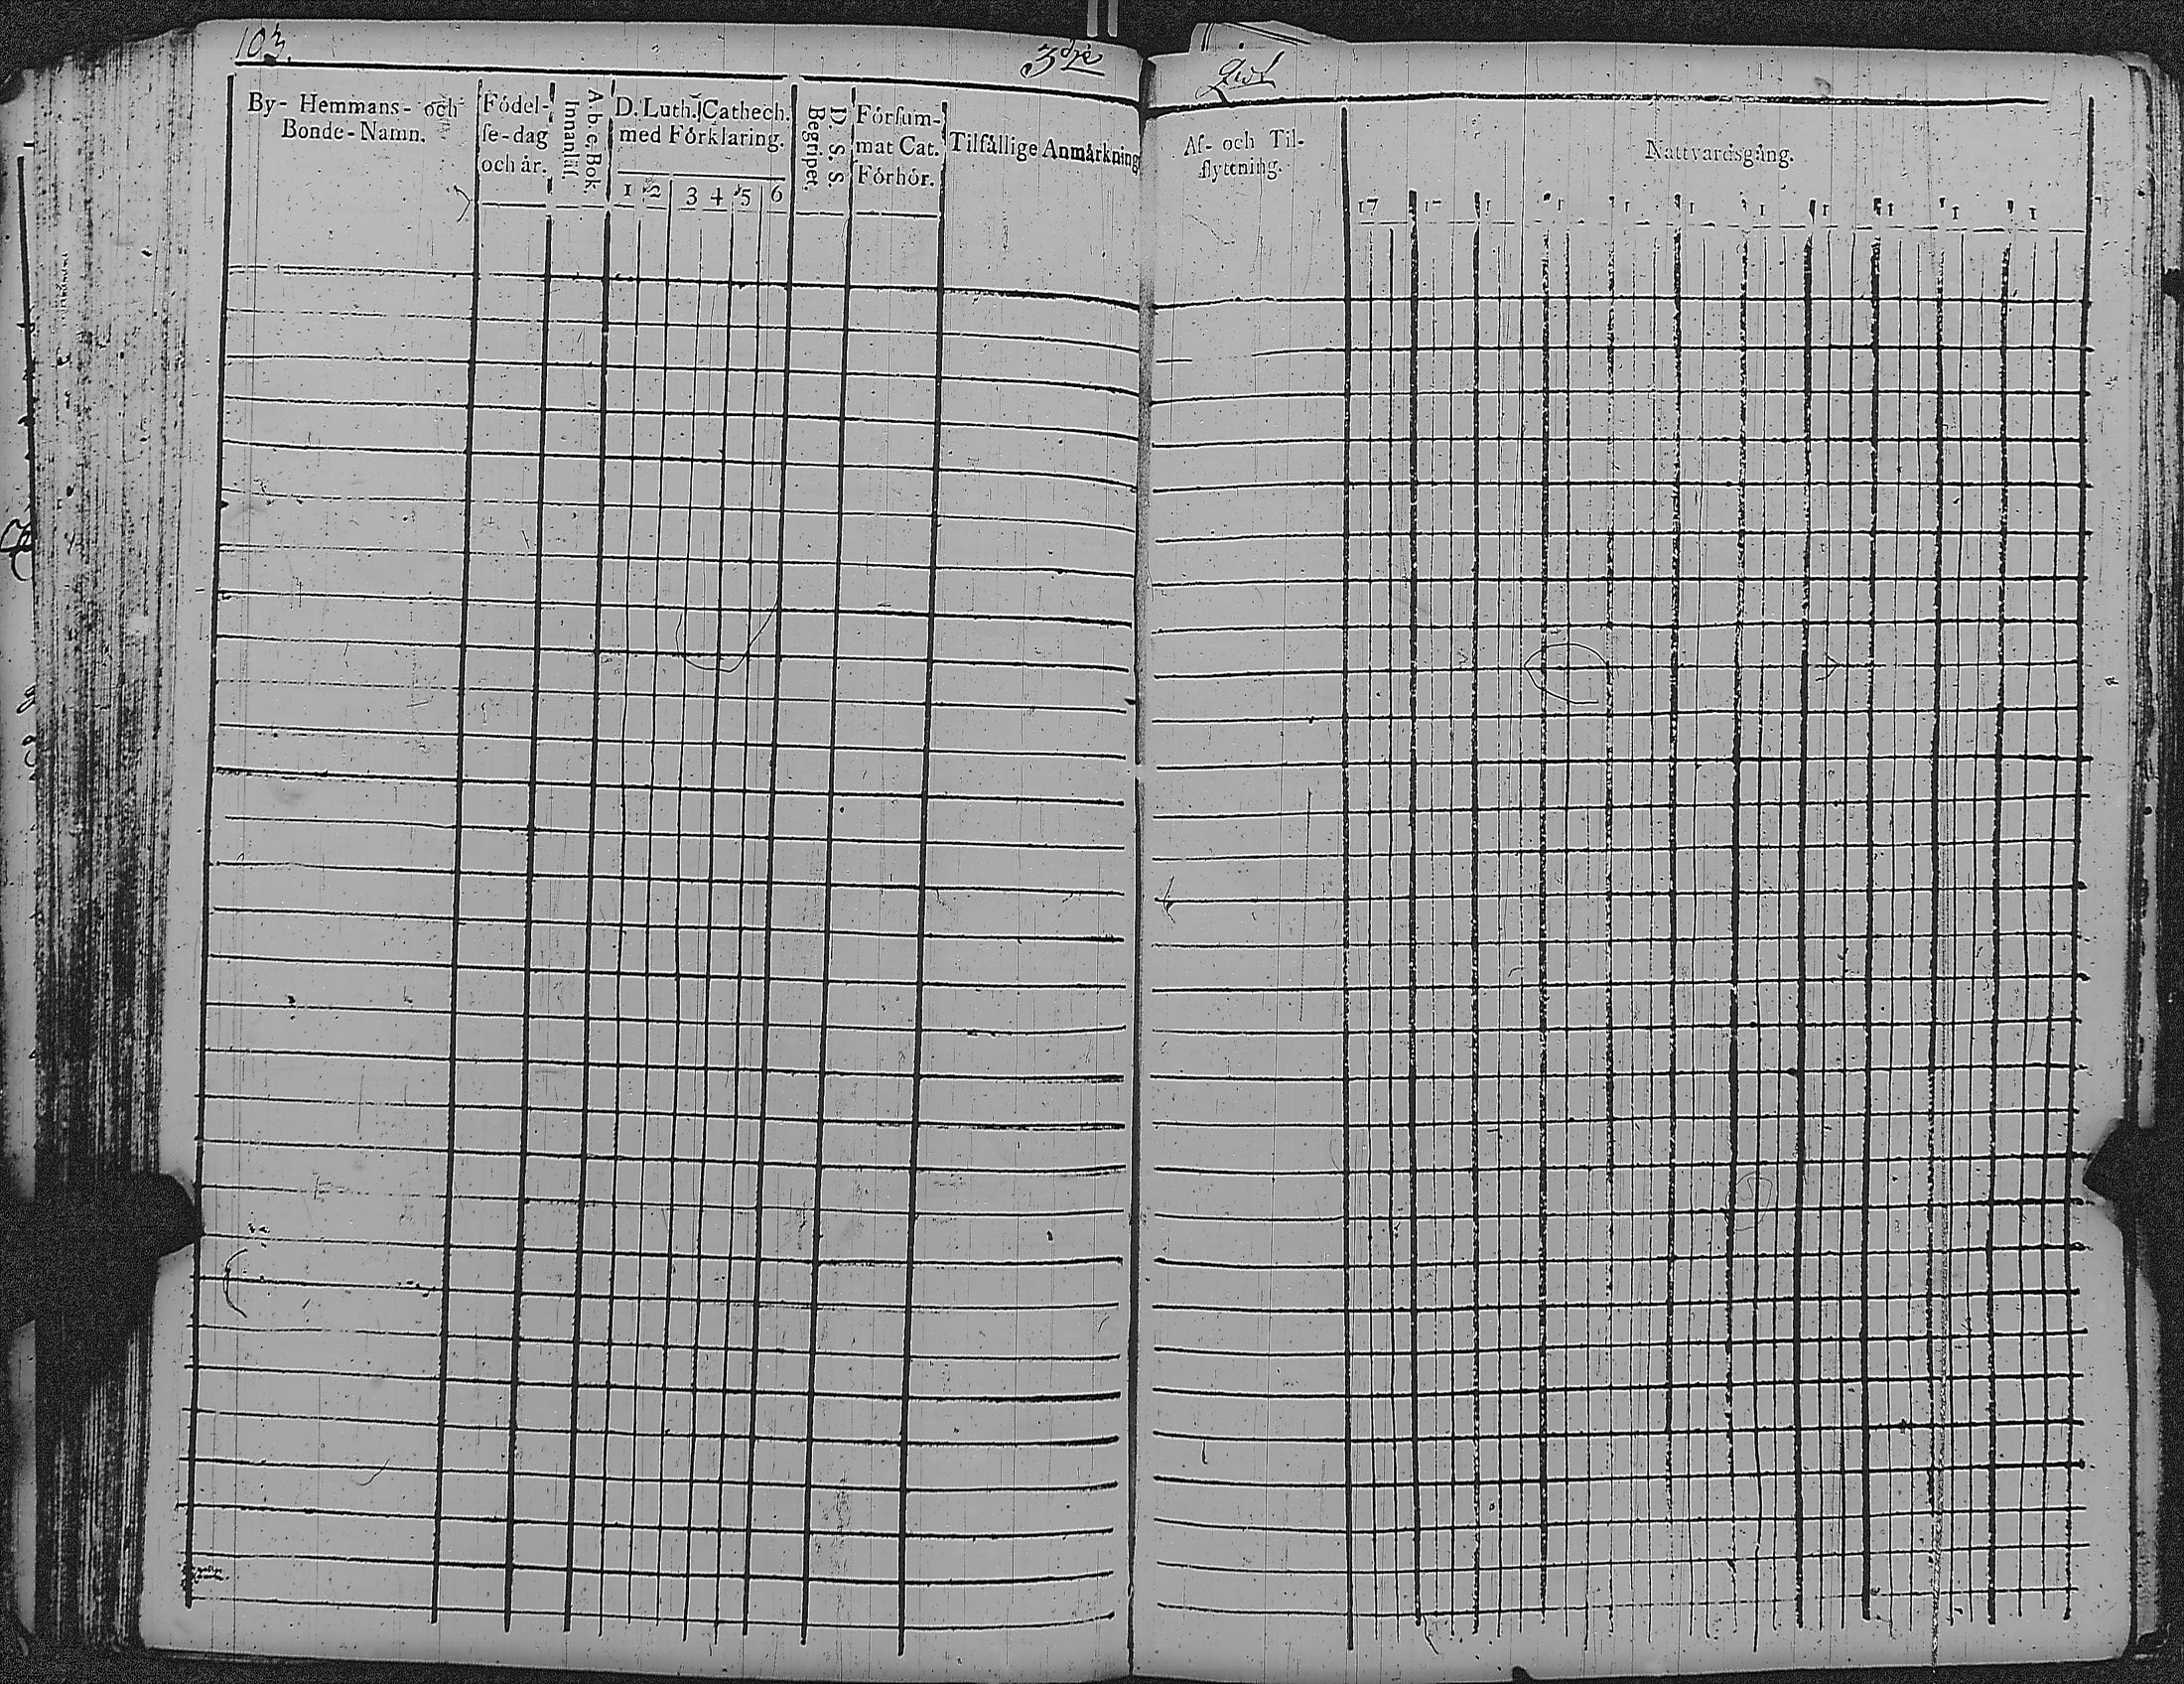 103.
3dje
Qvist
By- Hemmans- och
Bonde-Namn.
Födel-
se-dag
och år.
A.b.c.Bok
Innanläs.
D. Luth. Cathech.
med Förklaring.
1 2 3 4 5 6
D. S. S.
Begripet.
Försum-
mat Cat.
Förhör.
Tilfällige Anmärkning
Af- och Til-
flyttning.
Nattvardsgång.
17 17 1 1 1 1 1 1 1 1 1